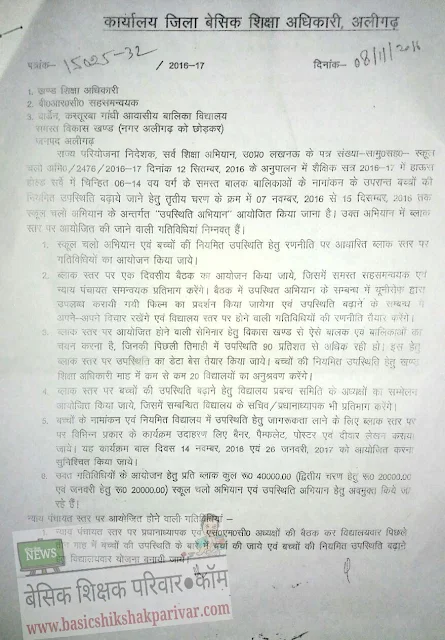 कार्यालय जिला बेसिक शिक्षा अधिकारी, अलीगढ़
पत्रांक- 15025-32 / 2016-17 दिनांक- 08/11/2016
1. खण्ड शिक्षा अधिकारी
2. बी०आर०सी० सहसमन्वयक
3. वार्डेन, कस्तूरबा गांधी आवासीय बालिका विद्यालय
समस्त विकास खण्ड (नगर अलीगढ़ को छोड़कर)
जनपद अलीगढ़
राज्य परियोजना निदेशक, सर्व शिक्षा अभियान, उ०प्र० लखनऊ के पत्र संख्या-सामु०सह०- स्कूल
चलो अभि०/2476/2016-17 दिनांक 12 सितम्बर, 2016 के अनुपालन में शैक्षिक सत्र 2016-17 में हाऊस
होल्ड सर्वे में चिन्हित 06-14 वय वर्ग के समस्त बालक बालिकाओं के नागांकन के उपरान्त बच्चों की
नियमित उपस्थिति बढ़ाये जाने हेतु तृतीय चरण के क्रम में 07 नवम्बर, 2016 से 15 दिसम्बर, 2016 तक
स्कूल चलो अभियान के अन्तर्गत "उपस्थिति अभियान" आयोजित किया जाना है। उक्त अभियान में ब्लाक
स्तर पर आयोजित की जाने वाली गतिविधियां निम्नवत् हैं।
1. स्कूल चलो अभियान एवं बच्चों की नियमित उपस्थिति हेतु रणनीति पर आधारित ब्लाक स्तर पर
गतिविधियों का आयोजन किया जाये।
2. ब्लाक स्तर पर एक दिवसीय बैठक का आयोजन किया जाये, जिसमें समस्त सहसमन्वयक एवं
न्याय पंचायत समन्वयक प्रतिभाग करेंगे। बैठक में उपस्थित अभियान के सम्बन्ध में यूनीसेफ द्वारा
उपलब्ध करायी गयी फिल्म का प्रदर्शन किया जायेगा एवं उपस्थिति बढ़ाने के सम्बन्ध में
अपने-अपने विचार रखेंगे एवं विद्यालय स्तर पर होने वाली गतिविधियों की रणनीति तैयार करेंगे।
3. ब्लाक स्तर पर आयोजित होने वाली सेमिनार हेतु विकास खण्ड से ऐसे बालक एवं बालिकाओं का
चयन करना है, जिनकी पिछली तिमाही में उपस्थिति 90 प्रतिशत से अधिक रही हो। इस हेतु
ब्लाक स्तर पर उपस्थिति का डेटा बेस तैयार किया जाये। बच्चों की नियमित उपस्थिति हेतु खण्ड
शिक्षा अधिकारी माह में कम से कम 20 विद्यालयों का अनुश्रवण करेंगे।
4. ब्लाक स्तर पर बच्चों की उपस्थिति बढ़ाने हेतु विद्यालय प्रबन्ध समिति के अध्यक्षों का सम्मेलन
आयोजित किया जाये, जिसमें सम्बन्धित विद्यालय के सचिव/प्रधानाध्यापक भी प्रतिभाग करेंगे।
5. बच्चों के नामांकन एवं नियमित विद्यालय में उपस्थिति हेतु जागरूकता लाने के लिए ब्लाक स्तर पर
पर विभिन्न प्रकार के कार्यक्रम उदाहरण लिए बैनर, पैम्फलेट, पोस्टर एवं दीवार लेखन कराया
जाये। यह कार्यक्रम बाल दिवस 14 नवम्बर, 2016 एवं 26 जनवरी, 2017 को आयोजित करना
सुनिश्चित किया जाये।
6. उक्त गतिविधियों के आयोजन हेतु प्रति ब्लाक कुल रू0 40000.00 (द्वितीय चरण हेतु रू0 20000.00
एवं जनवरी हेतु रू0 20000.00) स्कूल चलो अभियान एवं उपस्थिति अभियान हेतु अवमुक्त किये जा
रहे हैं।
न्याय पंचायत स्तर पर आयोजित होने वाली गतिविधियां -
1. न्याय पंचायत स्तर पर प्रधानाध्यापक एवं एस०एम०सी० अध्यक्षों की बैठक कर विद्यालयवार पिछले
माह में बच्चों की उपस्थिति के बारे में चर्चा की जाये एवं बच्चों की नियमित उपस्थिति बढ़ाने
विद्यालयवार योजना बनायी जाये।
NEWS
बेसिक शिक्षक परिवार●कॉम
www.basicshikshakparivar.com